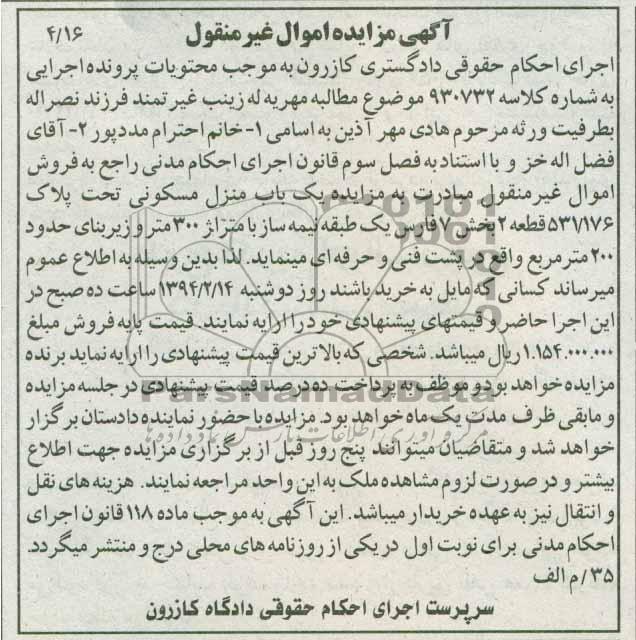 آگهی مزایده اموال غیر منقول
۴/۱۶
اجرای احکام حقوقی دادگستری کازرون به موجب محتویات پرونده اجرایی
به شماره کلاسه ۹۳۰۷۳۲ موضوع مطالبه مهریه له زینب غیرتمند فرزند نصراله
بطرفیت ورثه مرحوم هادی مهر آذین به اسامی ۱- خانم احترام مددپور ۲- آقای
فضل اله خز و با استناد به فصل سوم قانون اجرای احکام مدنی راجع به فروش
اموال غیر منقول مبادرت به مزایده یک باب منزل مسکونی تحت پلاک
۵۳۱/۱۷۶ قطعه ۲ بخش ۷ فارس یک طبقه نیمه ساز با متراژ ۳۰۰ متر و زیربنای حدود
۲۰۰ متر مربع واقع در پشت فنی و حرفه ای مینماید. لذا بدین وسیله به اطلاع عموم
میرساند کسانی که مایل به خرید باشند روز دوشنبه ۱۳۹۴/۲/۱۴ ساعت ده صبح در
این اجرا حاضر و قیمتهای پیشنهادی خود را ارایه نمایند. قیمت پایه فروش مبلغ
۱.۱۵۴.۰۰۰.۰۰۰ ریال میباشد. شخصی که بالاترین قیمت پیشنهادی را ارایه نماید برنده
مزایده خواهد بود و موظف به پرداخت ده درصد قیمت پیشنهادی در جلسه مزایده
و مابقی ظرف مدت یک ماه خواهد بود. مزایده با حضور نماینده دادستان برگزار
خواهد شد و متقاضیان میتوانند پنج روز قبل از برگزاری مزایده جهت اطلاع
بیشتر و در صورت لزوم مشاهده ملک به این واحد مراجعه نمایند. هزینه های نقل
و انتقال نیز به عهده خریدار میباشد. این آگهی به موجب ماده ۱۱۸ قانون اجرای
احکام مدنی برای نوبت اول در یکی از روزنامه های محلی درج و منتشر میگردد.
۳۵/م الف
سرپرست اجرای احکام حقوقی دادگاه کازرون
ParsNamadData